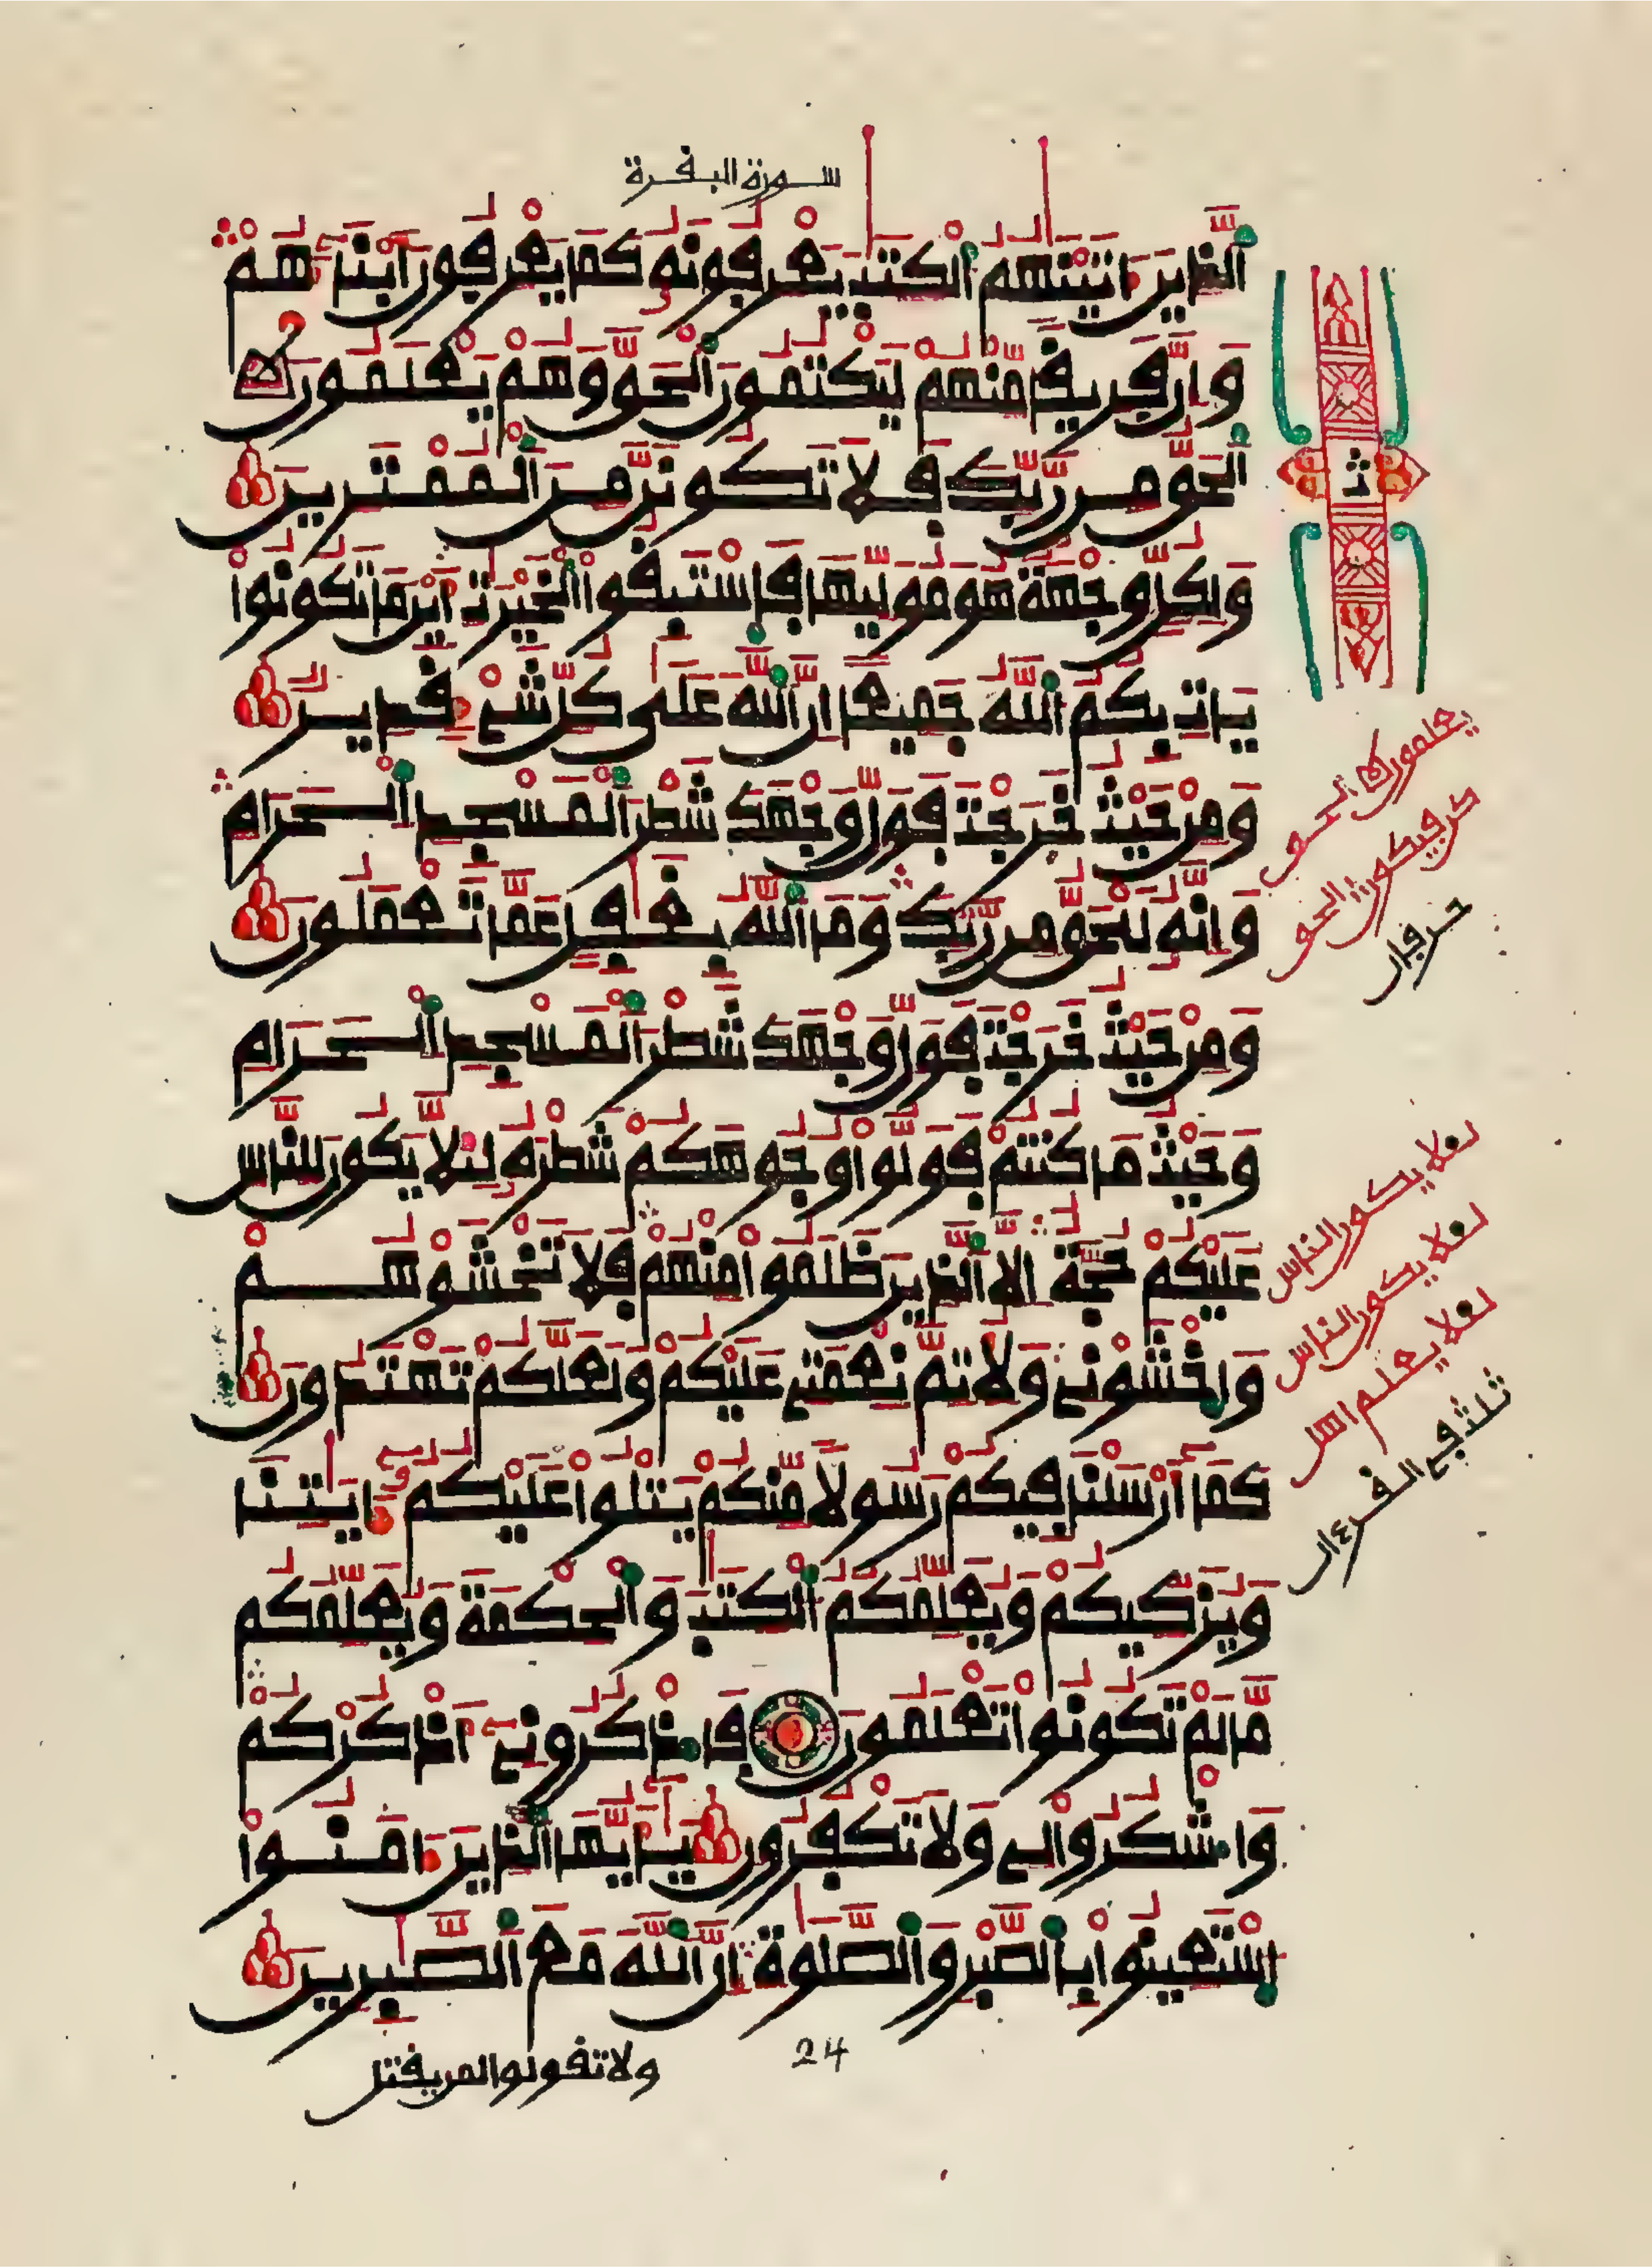 سورة البقرة
الذِينَ ءَاتَيْنَٰهُمُ الْكِتَٰبَ يَعْرِفُونَهُۥ كَمَا يَعْرِفُونَ أَبْنَآءَهُمْ
وَإِنَّ فَرِيقاً مِّنْهُمْ لَيَكْتُمُونَ الْحَقَّ وَهُمْ يَعْلَمُونَ
الْحَقُّ مِن رَّبِّكَ فَلَا تَكُونَنَّ مِنَ الْمُمْتَرِينَ
وَلِكُلٍّ وِجْهَةٌ هُوَ مُوَلِّيهَا فَاسْتَبِقُوا الْخَيْرَٰتِ أَيْنَ مَا تَكُونُوا
يَاتِ بِكُمُ اللَّهُ جَمِيعاً إِنَّ اللَّهَ عَلَىٰ كُلِّ شَيْءٍ قَدِيرٌ
وَمِنْ حَيْثُ خَرَجْتَ فَوَلِّ وَجْهَكَ شَطْرَ الْمَسْجِدِ الْحَرَامِ
وَإِنَّهُ لَلْحَقُّ مِن رَّبِّكَ وَمَا اللَّهُ بِغَٰفِلٍ عَمَّا تَعْمَلُونَ
وَمِنْ حَيْثُ خَرَجْتَ فَوَلِّ وَجْهَكَ شَطْرَ الْمَسْجِدِ الْحَرَامِ
وَحَيْثُ مَا كُنتُمْ فَوَلُّوا وُجُوهَكُمْ شَطْرَهُ لِيَلَّا يَكُونَ لِلنَّاسِ
عَلَيْكُمْ حُجَّةٌ إِلَّا الذِينَ ظَلَمُوا مِنْهُمْ فَلَا تَخْشَوْهُمْ
وَاخْشَوْنِي وَلِأُتِمَّ نِعْمَتِي عَلَيْكُمْ وَلَعَلَّكُمْ تَهْتَدُونَ
كَمَا أَرْسَلْنَا فِيكُمْ رَسُولاً مِّنكُمْ يَتْلُوا عَلَيْكُمْ ءَايَٰتِنَا
وَيُزَكِّيكُمْ وَيُعَلِّمُكُمُ الْكِتَٰبَ وَالْحِكْمَةَ وَيُعَلِّمُكُم
مَّا لَمْ تَكُونُوا تَعْلَمُونَ فَاذْكُرُونِي أَذْكُرْكُمْ
وَاشْكُرُوا لِي وَلَا تَكْفُرُونِ يَٰأَيُّهَا الذِينَ ءَامَنُوا
اسْتَعِينُوا بِالصَّبْرِ وَالصَّلَوٰةِ إِنَّ اللَّهَ مَعَ الصَّٰبِرِينَ
24
ولا تقولوا لمن يقتل
ث
يعلمون الحق
فيكون الحق
حرفان
لئلا يكون للناس
لئلا يكون للناس
لئلا يعلم اهل
ثلث في القرءان